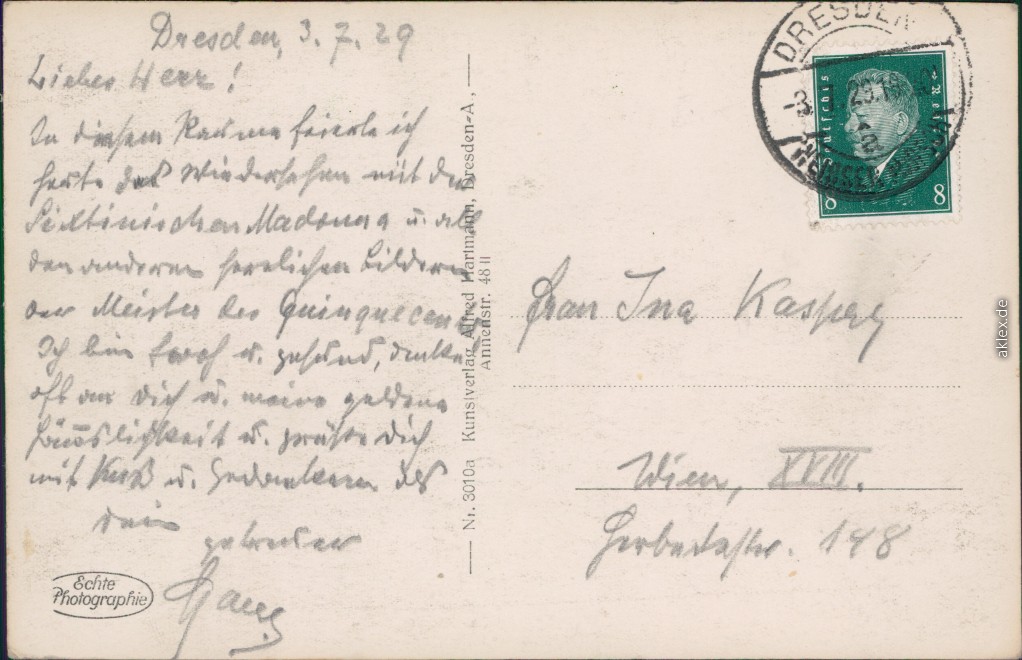 Dresden, 3. 7. 29
Liebes Herz!
In diesem Raume feierte ich
heute das Wiedersehen mit der
Sixtinischen Madonna u. all
den anderen herrlichen Bildern
der Meister des Quinquecento
Ich bin froh u. gesund, denke
oft an Dich u. meine goldene
Häuslichkeit u. grüße Dich
mit Kuß u. Gedenken als
Dein
getreuer
Echte
Photographie
Nr. 3010a Kunstverlag Alfred Hartmann, Dresden-A,
Annenstr. 48 II
DRESDEN
Deutsches Reich
8 8
Frau Ina Kasperg
Wien, XVIII.
148
aklex.de